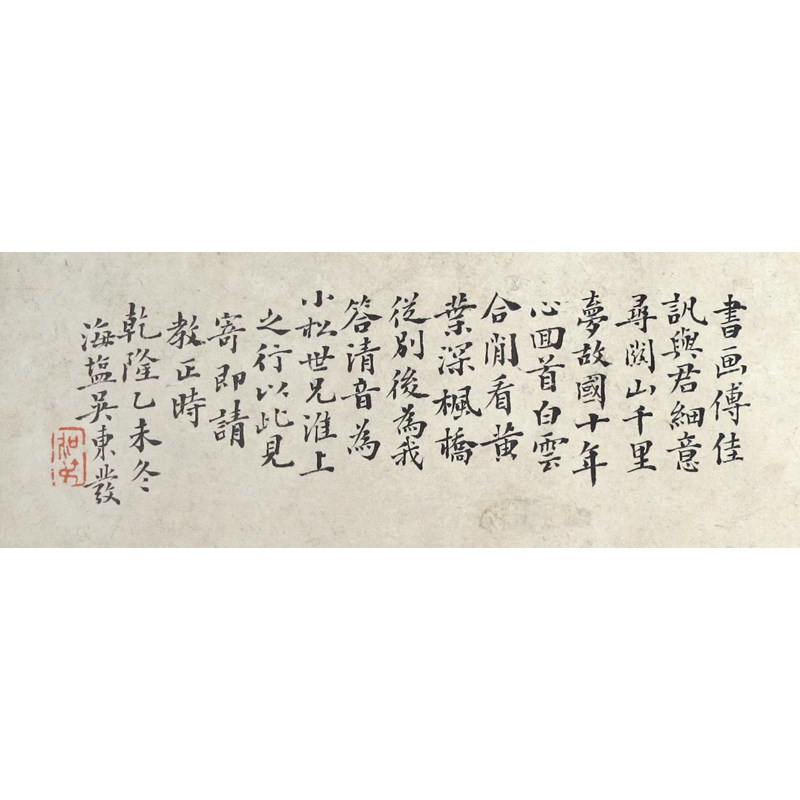 書画傳佳
訊與君細意
尋關山千里
夢故國十年
心回首白雲
合閒看黃
葉深楓橋
從別後為我
答清音為
小松世兄淮上
之行以此見
寄即請
教正時
乾隆乙未冬
海塩吳東發